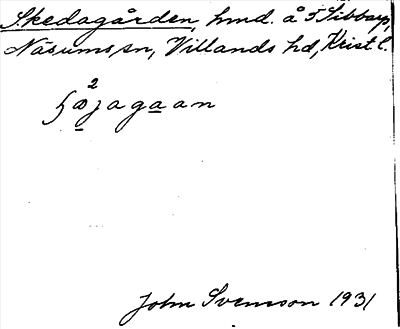 Skedagården, hmd. å 5 Sibbarp,
Näsums sn, Villands hd, Krist l.
John Svensson 1931